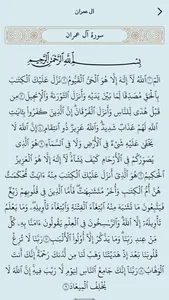 آل عمران
سورة آل عمران
بِسْمِ ٱللَّهِ ٱلرَّحْمَٰنِ ٱلرَّحِيمِ
الٓمٓ ١ ٱللَّهُ لَآ إِلَٰهَ إِلَّا هُوَ ٱلْحَىُّ ٱلْقَيُّومُ ٢ نَزَّلَ عَلَيْكَ ٱلْكِتَٰبَ
بِٱلْحَقِّ مُصَدِّقًا لِّمَا بَيْنَ يَدَيْهِ وَأَنزَلَ ٱلتَّوْرَىٰةَ وَٱلْإِنجِيلَ ٣ مِن
قَبْلُ هُدًى لِّلنَّاسِ وَأَنزَلَ ٱلْفُرْقَانَ إِنَّ ٱلَّذِينَ كَفَرُوا۟ بِـَٔايَٰتِ
ٱللَّهِ لَهُمْ عَذَابٌ شَدِيدٌ وَٱللَّهُ عَزِيزٌ ذُو ٱنتِقَامٍ ٤ إِنَّ ٱللَّهَ لَا
يَخْفَىٰ عَلَيْهِ شَىْءٌ فِى ٱلْأَرْضِ وَلَا فِى ٱلسَّمَآءِ ٥ هُوَ ٱلَّذِى
يُصَوِّرُكُمْ فِى ٱلْأَرْحَامِ كَيْفَ يَشَآءُ لَآ إِلَٰهَ إِلَّا هُوَ ٱلْعَزِيزُ
ٱلْحَكِيمُ ٦ هُوَ ٱلَّذِىٓ أَنزَلَ عَلَيْكَ ٱلْكِتَٰبَ مِنْهُ ءَايَٰتٌ مُّحْكَمَٰتٌ
هُنَّ أُمُّ ٱلْكِتَٰبِ وَأُخَرُ مُتَشَٰبِهَٰتٌ فَأَمَّا ٱلَّذِينَ فِى قُلُوبِهِمْ زَيْغٌ
فَيَتَّبِعُونَ مَا تَشَٰبَهَ مِنْهُ ٱبْتِغَآءَ ٱلْفِتْنَةِ وَٱبْتِغَآءَ تَأْوِيلِهِۦ وَمَا يَعْلَمُ
تَأْوِيلَهُۥٓ إِلَّا ٱللَّهُ وَٱلرَّٰسِخُونَ فِى ٱلْعِلْمِ يَقُولُونَ ءَامَنَّا بِهِۦ كُلٌّ
مِّنْ عِندِ رَبِّنَا وَمَا يَذَّكَّرُ إِلَّآ أُو۟لُوا۟ ٱلْأَلْبَٰبِ ٧ رَبَّنَا لَا تُزِغْ
قُلُوبَنَا بَعْدَ إِذْ هَدَيْتَنَا وَهَبْ لَنَا مِن لَّدُنكَ رَحْمَةً إِنَّكَ أَنتَ
ٱلْوَهَّابُ ٨ رَبَّنَآ إِنَّكَ جَامِعُ ٱلنَّاسِ لِيَوْمٍ لَّا رَيْبَ فِيهِ إِنَّ ٱللَّهَ لَا
يُخْلِفُ ٱلْمِيعَادَ ٩